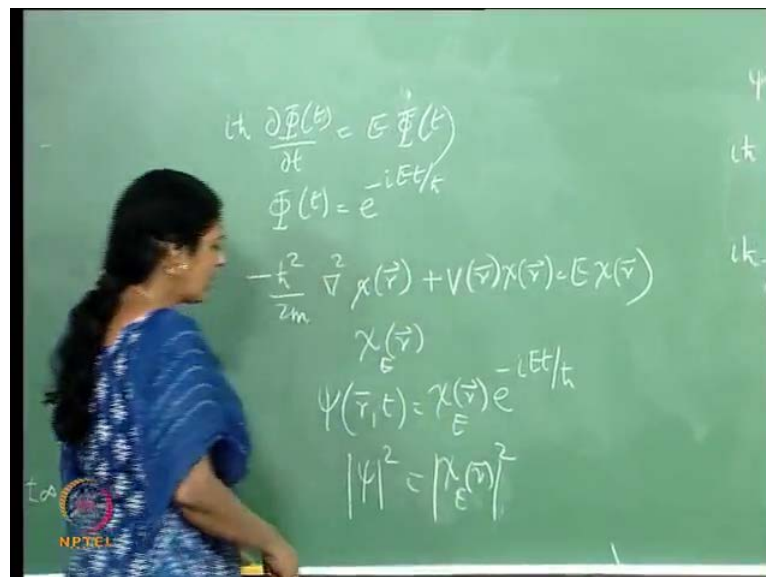 iħ ∂Φ(t)/∂t = E Φ(t)
Φ(t) = e^{-iEt/ħ}
-ħ²/2m ∇² χ(r⃗) + V(r⃗)χ(r⃗) = E χ(r⃗)
χ_E(r⃗)
ψ(r⃗, t) = χ_E(r⃗) e^{-iEt/ħ}
|ψ|² = |χ_E(r⃗)|²
ψ
iħ
iħ
NPTEL